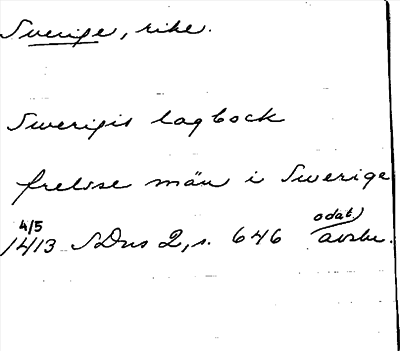 Sverige, rike.
Swerigis lagbock
frelsse män i Swerige
4/5 odat)
1413 SDns 2, s. 646 avskr.